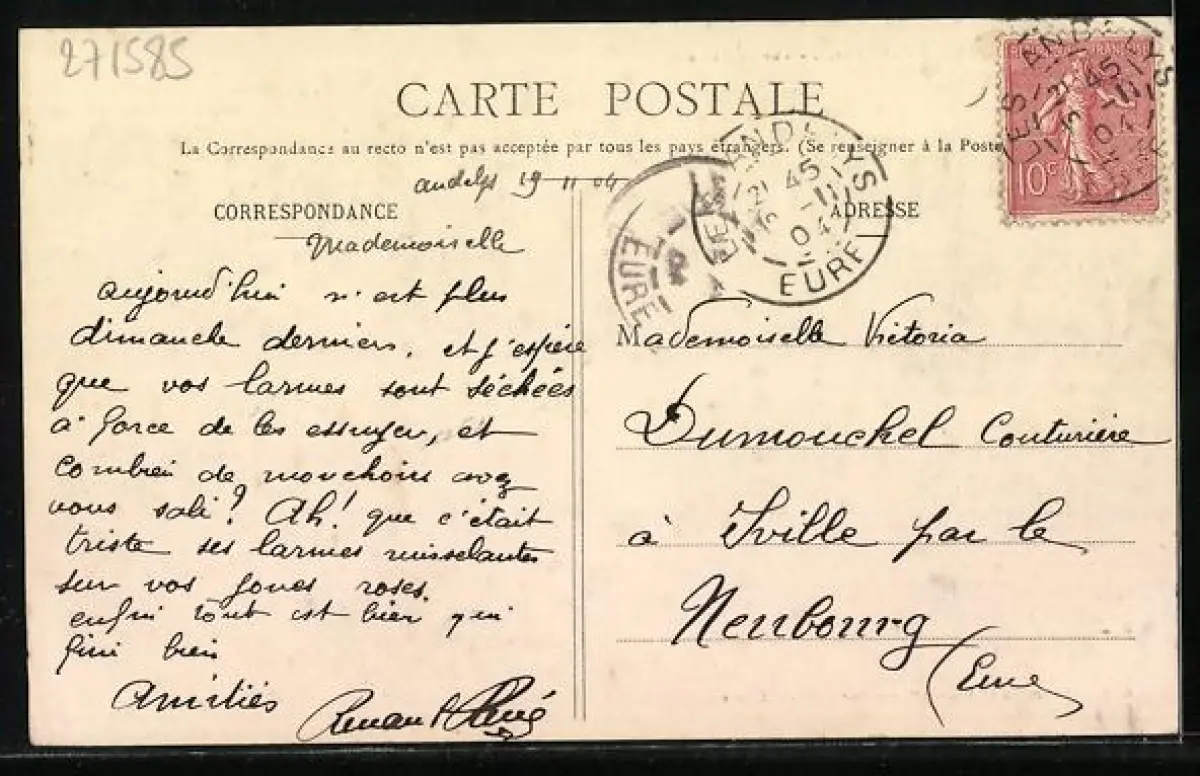 271585
CARTE POSTALE
La Correspondance au recto n'est pas acceptée par tous les pays étrangers. (Se renseigner à la Poste
andelys 19 11 04
CORRESPONDANCE
Mademoiselle
aujourd'hui n'est plus
dimanche dernier, et j'espère
que vos larmes sont séchées
à force de les essuyer, et
combien de mouchoirs avez
vous sali? Ah! que c'était
triste ses larmes ruisselantes
sur vos joues roses.
enfin tout est bien qui
fini bien
Amitiés
René
ADRESSE
Mademoiselle Victoria
Dumouchel Couturière
à Iville par le
Neubourg
(Eure
RÉPUBLIQUE FRANÇAISE
10c
LES ANDELYS
45
04
EURE
LES ANDELYS
45
04
EURE